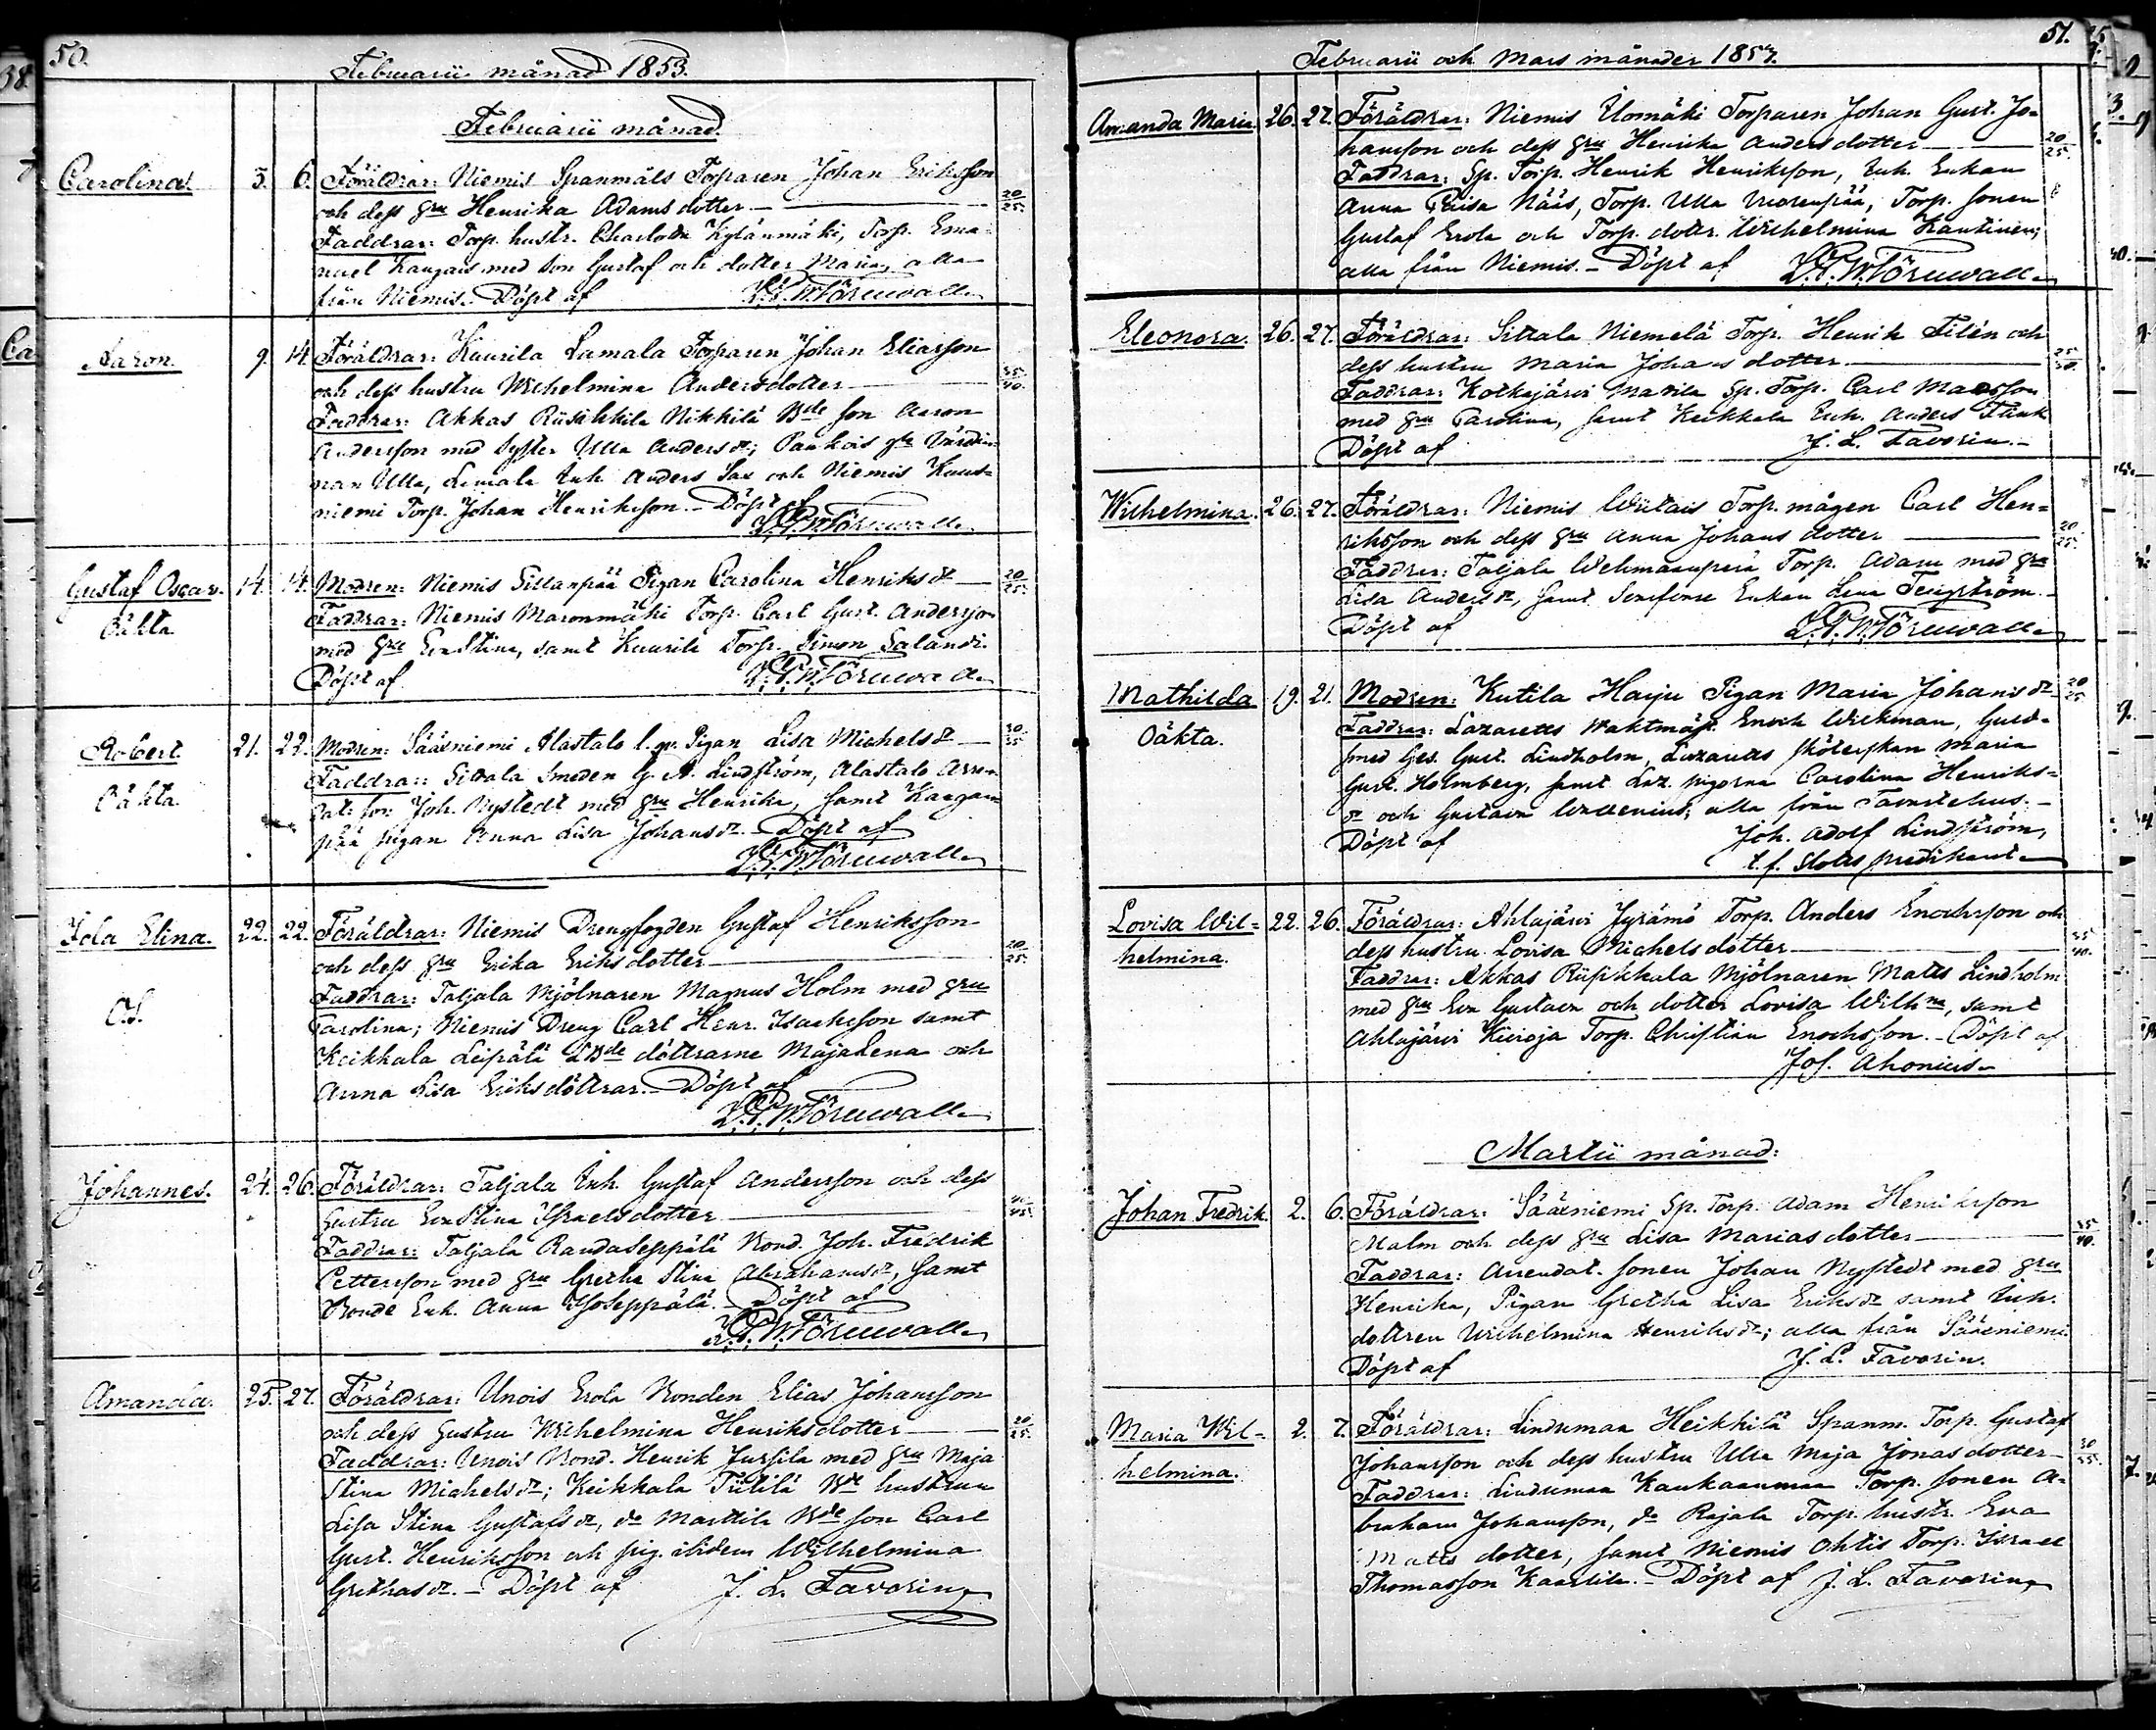 50.
Februarii månad 1853.
Februarii månad.
Carolina. 5. 6. Föräldrar: Niemis Spanmåls Torparen Johan Eriksson
och dess hru Henrika Adamsdotter — 20/25.
Faddrar: Torp. hustr. Charlotta Kylänmäki, Torp. Ema-
nuel Kangais med son Gustaf och dotter Maria, alla
från Niemis. Döpt af
Aaron. 9. 14. Föräldrar: Kuurila Lamala Torparen Johan Eliasson
och dess hustru Wilhelmina Andersdotter — 35/40.
Faddrar: Akkas Nikkilä Bde son Aaron
Andersson med syster Ulla Andersdr; Värdin-
nan Ulla, Inh. Anders Sax och Niemis
niemi Torp. Johan Henriksson. Döpt af
Gustaf Oscar. 14. 14. Modren: Niemis Sillanpää Pigan Carolina Henriksdr — 20/25.
Oäkta Faddrar: Niemis Maronmäki Torp. Carl Gust. Andersson
med hru Eva Stina, samt Kuurila Torp. Simon Salandr.
Döpt af
Robert 21. 22. Modren: Sääxniemi Alastalo Pigan Lisa Michelsdr — 30/35
Oäkta. Faddrar: Sittala Smeden G. A. Lindström, Alastalo Arren-
dat. son Joh. Nystedt med hru Henrika, samt Kangan-
pää pigan Anna Lisa Johansdr. Döpt af
Ida Elina. 22. 22. Föräldrar: Niemis Drengfogden Gustaf Henriksson
och dess hru Erika Eriksdotter — 20/25.
Faddrar: Taljala Mjölnaren Magnus Holm med hru
Carolina; Niemis Dreng Carl Henr. Isacksson samt
Keikkala Leipälä Bde döttrarne Maja Lena och
Anna Lisa Eriksdöttrar. Döpt af
Johannes. 24. 26. Föräldrar: Taljala Inh. Gustaf Andersson och dess
hustru Eva Stina Israelsdotter — 40/45.
Faddrar: Taljala Raudaseppälä Bond. Joh. Fredrik
Pettersson med hru Gretha Stina Abrahamsdr, samt
Bonde Enk. Anna Isoseppälä. Döpt af
Amanda. 25. 27. Föräldrar: Unois Erola Bonden Elias Johansson
och dess hustru Wilhelmina Henriksdotter — 20/25.
Faddrar: Unois Bond. Henrik Jussila med hru Maja
Stina Michelsdr; Keikkala Tiitilä Bde hustrun
Lisa Stina Gustafsdr, do Marttila Bde son Carl
Gust. Henriksson och pig. ibidem Wilhelmina
Grethasdr. — Döpt af J. L. Favorin
51.
Februarii och Mars månader 1853.
Amanda Maria 26. 27. Föräldrar: Niemis Ulomäki Torparen Johan Gust. Jo-
hansson och dess hru Henrika Andersdotter — 20/25.
Faddrar: Sp. Torp. Henrik Henriksson, Inh. Enkan
Anna Caisa Nääs, Torp. Ulla Vuorenpää, Torp. sonen
Gustaf Erola och Torp. dottr. Wilhelmina Kantinen;
alla från Niemis. — Döpt af
Eleonora. 26. 27. Föräldrar: Sittala Niemelä Torp. Henrik Filén och
dess hustru Maria Johansdotter — 25/30.
Faddrar: Kotkajärvi Mattila Sp. Torp. Carl Mattsson
med hru Carolina, samt Keikkala Inh. Anders Flink
Döpt af J. L. Favorin. —
Wilhelmina. 26. 27. Föräldrar: Niemis Torp. mågen Carl Hen-
riksson och dess hru Anna Johansdotter — 20/25.
Faddrar: Taljala Wehmaanperä Torp. Adam med hru
Lisa Andersdr, samt Enkan Lena Tengström.
Döpt af
Mathilda 19. 21. Modren: Kutila Harju Pigan Maria Johansdr — 20/25
Oäkta. Faddrar: Lazaretts Waktmäst. Enoch Wickman, Guld-
smed Ges. Gust. Lindholm, Lazaretts sköterskan Maria
Gust. Holmberg, samt Laz. pigorna Carolina Henriks-
dr och Gustava Wallenius; alla från Tavastehus. —
Döpt af Joh. Adolf Lindström,
t. f. slotts predikant
Lovisa Wil- 22. 26. Föräldrar: Ahlajärvi Jyrämö Torp. Anders Enochsson och
helmina. dess hustru Lovisa Michelsdotter — 35/40.
Faddrar: Akkas Mjölnaren Matts Lindholm
med hru Eva Gustava och dotter Lovisa Wilhna, samt
Ahlajärvi Kiiroja Torp. Christian Enochsson. — Döpt af
Jos. Ahonius
Martii månad:
Johan Fredrik. 2. 6. Föräldrar: Sääxniemi Sp. Torp. Adam Henriksson
Malm och dess hru Lisa Mariasdotter — 35/40.
Faddrar: Arrendat. sonen Johan Nystedt med hru
Henrika, Pigan Gretha Lisa Eriksdr samt Inh.
dottren Wilhelmina Henriksdr; alla från Sääxniemi.
Döpt af J. L. Favorin.
Maria Wil- 2. 7. Föräldrar: Lindumaa Heikkilä Spanm. Torp. Gustaf
helmina. Johansson och dess hustru Ulla Maja Jonasdotter — 30/35.
Faddrar: Lindumaa Kaukaanmaa Torp. sonen A-
braham Johansson, do Rajala Torp. hustr. Eva
Matts dotter, samt Niemis Ohtis Torp. Israel
Thomasson Kaartila. — Döpt af J. L. Favorin